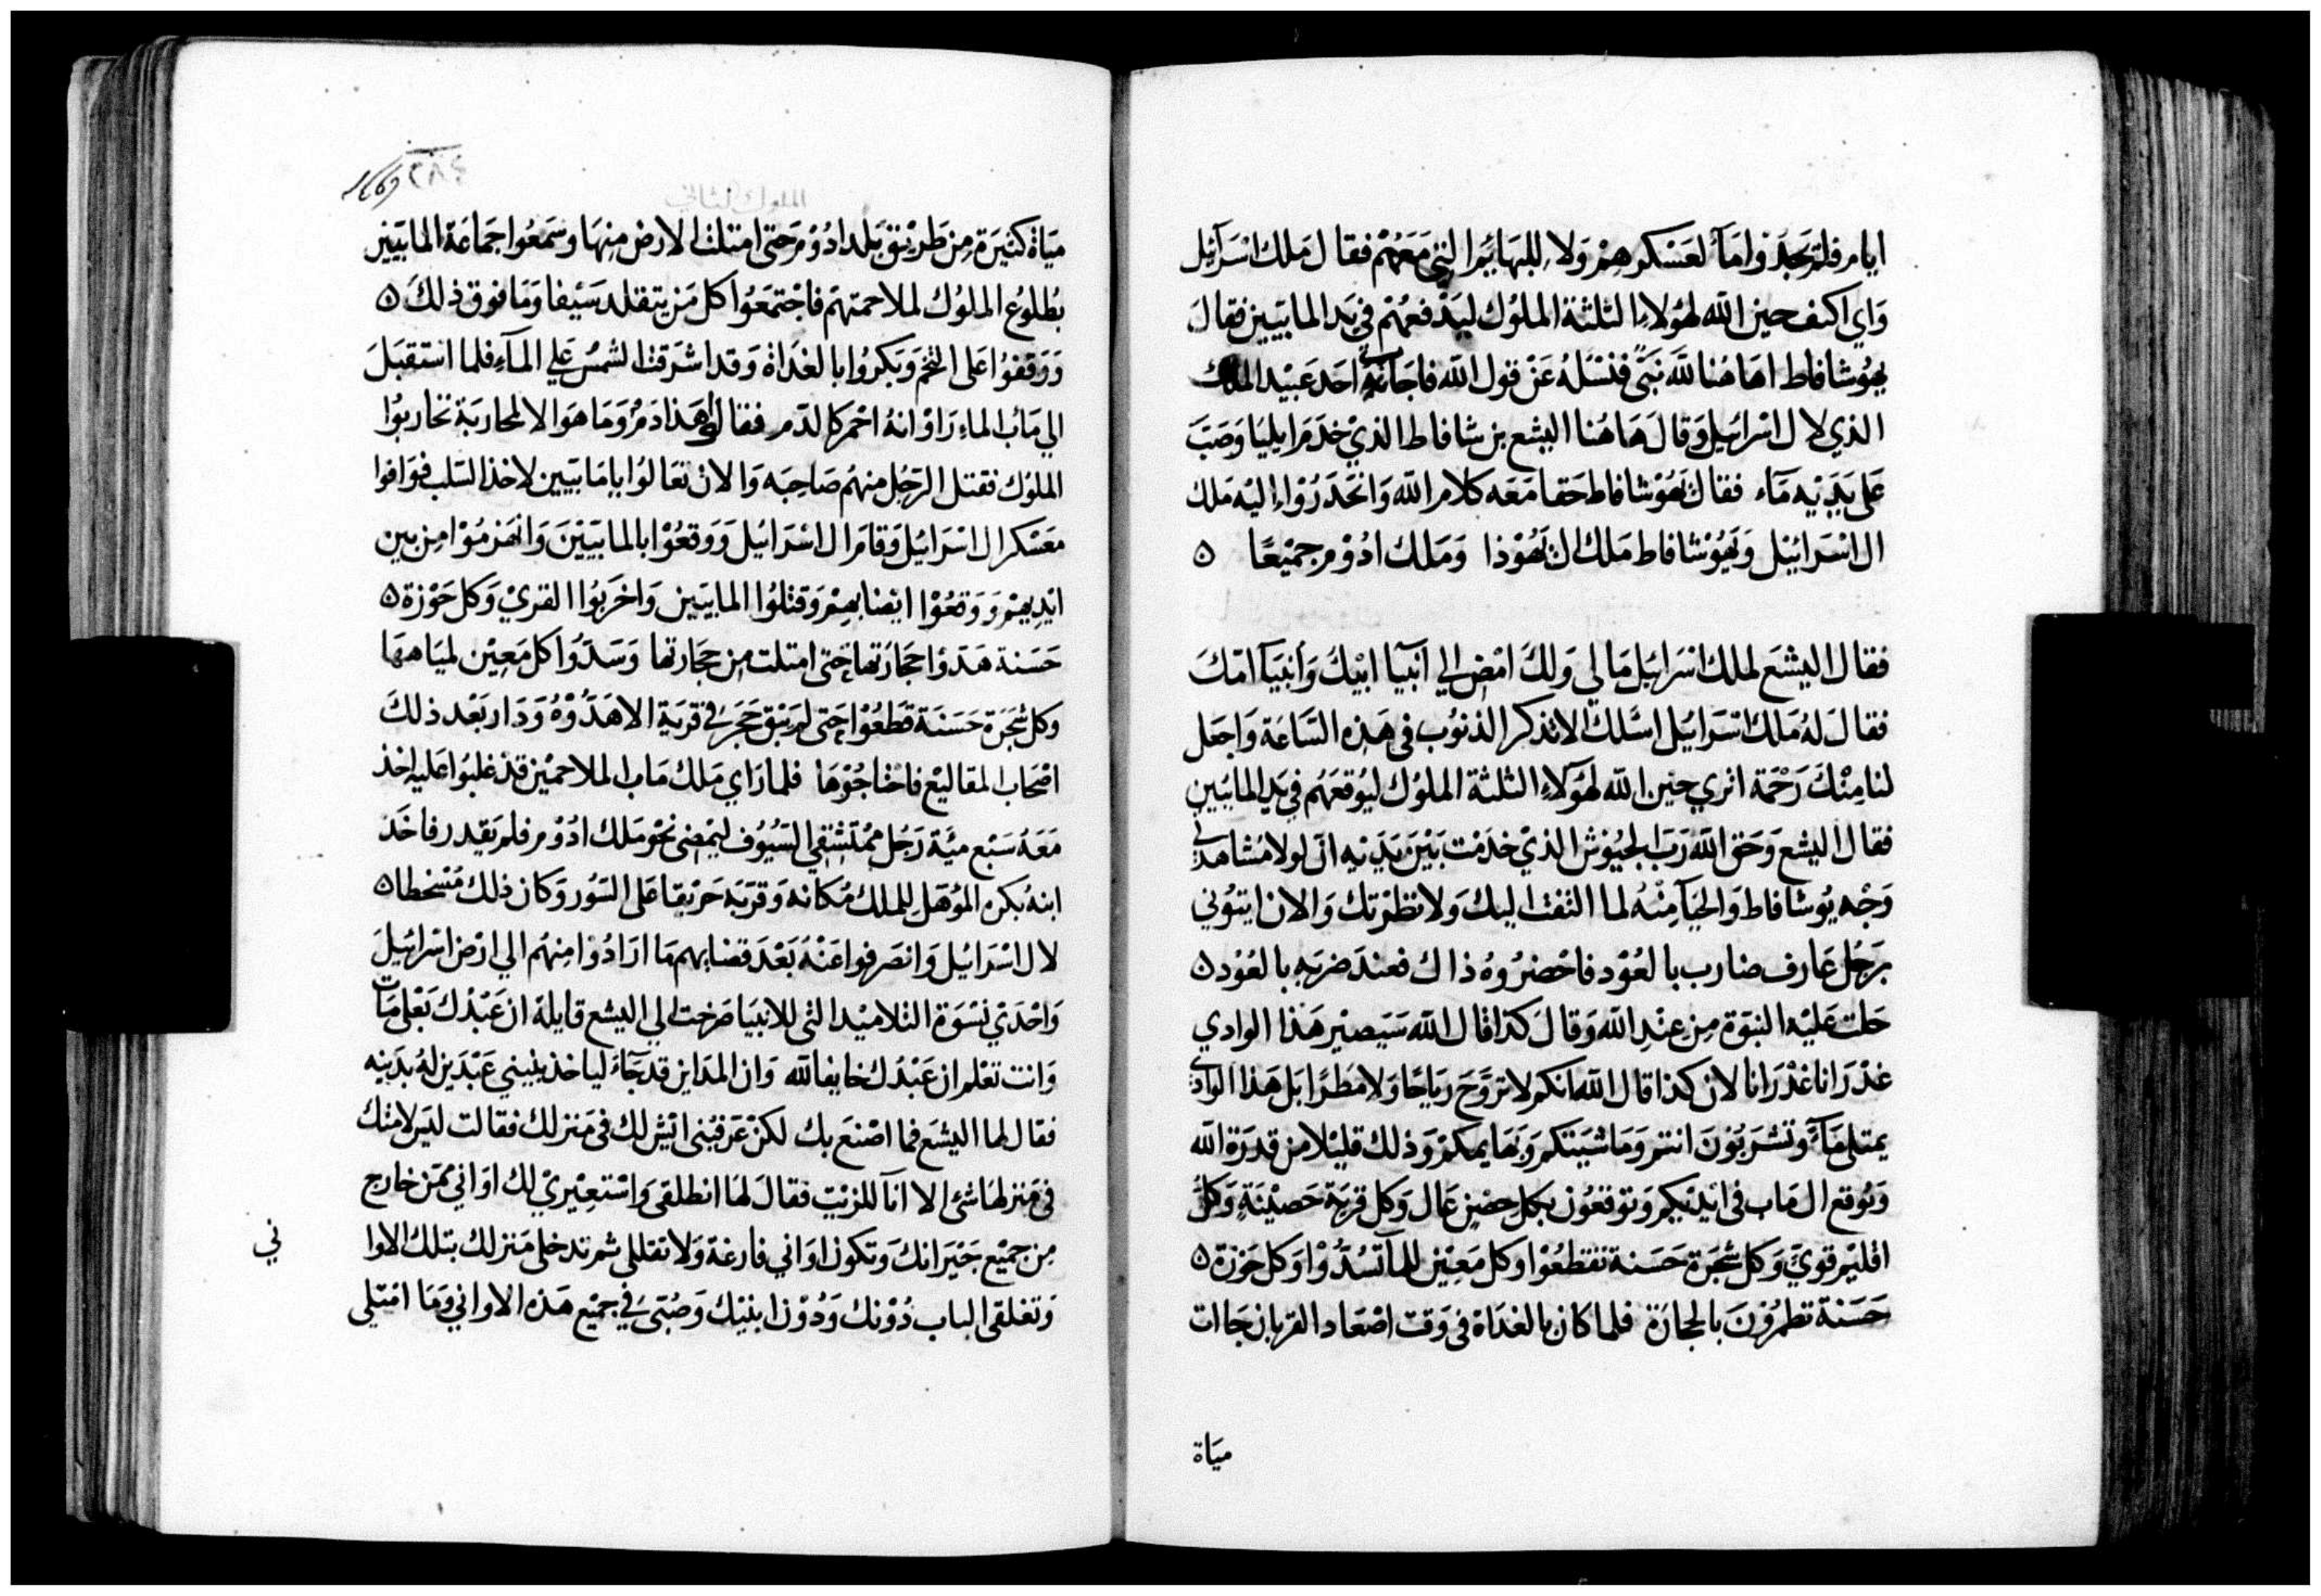 ايام فلم يجدوا مآء لعسكرهم ولا للبهائم التي معهم فقال ملك اسرائيل
واي اكنف حين الله لهولاء الثلثة الملوك ليدفعهم في يد المابيين فقال
يهوشافاط اهاهنا لله نبي فنسله عن قول الله فاجابه احد عبيد الملك
الذي لال اسرائيل وقال هاهنا اليشع بن شافاط الذي خدم ايليا وصب
على يديه مآء فقال يهوشافاط حقا معه كلام الله وانحدروا اليه ملك
ال اسرائيل ويهوشافاط ملك ال يهوذا وملك ادوم جميعا ٥
فقال اليشع لملك اسرائيل مالي ولك امض الي انبيا ابيك وانبيآ امك
فقال له ملك اسرائيل اسلك الا تذكر الذنوب في هذه الساعة واجعل
لنا منك رحمة اتري حين الله لهولآء الثلثة الملوك ليوقعهم في يد المابيين
فقال اليشع وحق الله رب الجيوش الذي خدمت بين يديه ان لولا مشاهدتي
وجه يوشافاط والحيآ منه لما التفت اليك ولا نظرتك والان ايتوني
برجل عارف ضارب بالعود فاحضروه ذاك فعند ضربه بالعود ٥
حلت عليه النبوة من عند الله وقال كذا قال الله سيصير هذا الوادي
غدرانا غدرانا لان كذا قال الله انكم لا تروح رياحا ولا مطرا بل هذا الوادي
يمتلي مآء وتشربون انتم وماشيتكم وبهايمكم وذلك قليلا من قدرة الله
ويوقع ال ماب في ايديكم وتوقعون بكل حضن عال وكل قرية حصينة وكل
اقليم قوي وكل شجرة حسنة تقطعوا وكل معين للمآ تسدوا وكل حوزة ٥
حسنة تطمرون بالحجارة فلما كان بالغداة في وقت اصعاد القربان جاات
مياة
٢٨٤
الملوك الثاني
مياة كثيرة من طريق بلد ادوم حتى امتلت الارض منها وسمعوا جماعة المابيين
بطلوع الملوك لملاحمتهم فاجتمعوا كل من يتقلد سيفا وما فوق ذلك ٥
ووقفوا على التخم وبكروا بالغداة وقد اشرقت الشمس علي المآء فلما استقبل
الي ماب الماء راوا انه احمر كالدم فقالوا هذا دم وما هو الا لمحاربة تحاربوا
الملوك فقتل الرجل منهم صاحبه والان تعالوا يا مابيين لاخذ السلب فوافوا
معسكر ال اسرائيل وقام ال اسرائيل ووقعوا بالمابيين وانهزموا من بين
ايديهم ووقعوا ايضا بهم وقتلوا المابيين واخربوا القري وكل حوزة ٥
حسنة هدوا حجارتها حتى امتلت من حجارتها وسدوا كل معين لمياهها
وكل شجرة حسنة قطعوا حتى لم يبق حجر في قرية الا هدوه ودار بعد ذلك
اصحاب المقاليع فاختاجوها فلما راي ملك ماب الملاحمين قد غلبوا عليه اخذ
معه سبع مئة رجل ممتشقي السيوف ليمضي نحو ملك ادوم فلم يقدر فاخذ
ابنه بكره المؤهل للملك مكانه وقربه حريقا على السور وكان ذلك مسخطا ٥
لال اسرائيل وانصرفوا عنه بعد قضايهم ما ارادوا منهم الي ارض اسرائيل
واحدي نسوة التلاميد التي للانبيا صرخت الي اليشع قايلة ان عبدك بعلي مات
وانت تعلم ان عبدك خايفا لله وان المداين قد جآء لياخذ بنيني عبدين له بدينه
فقال لها اليشع فما اصنع بك لكن عرفيني ايش لك في منزلك فقالت ليس لامتك
في منزلها شئ الا انآ للزيت فقال لها انطلقي واستعيري لك اواني ممن خارج
من جميع جيرانك وتكون اواني فارغة ولا تقللي ثم تدخلي منزلك بتلك الاوا
ني
وتغلقي الباب دونك ودون ابنيك وصبي في جميع هذه الاواني وما امتلي